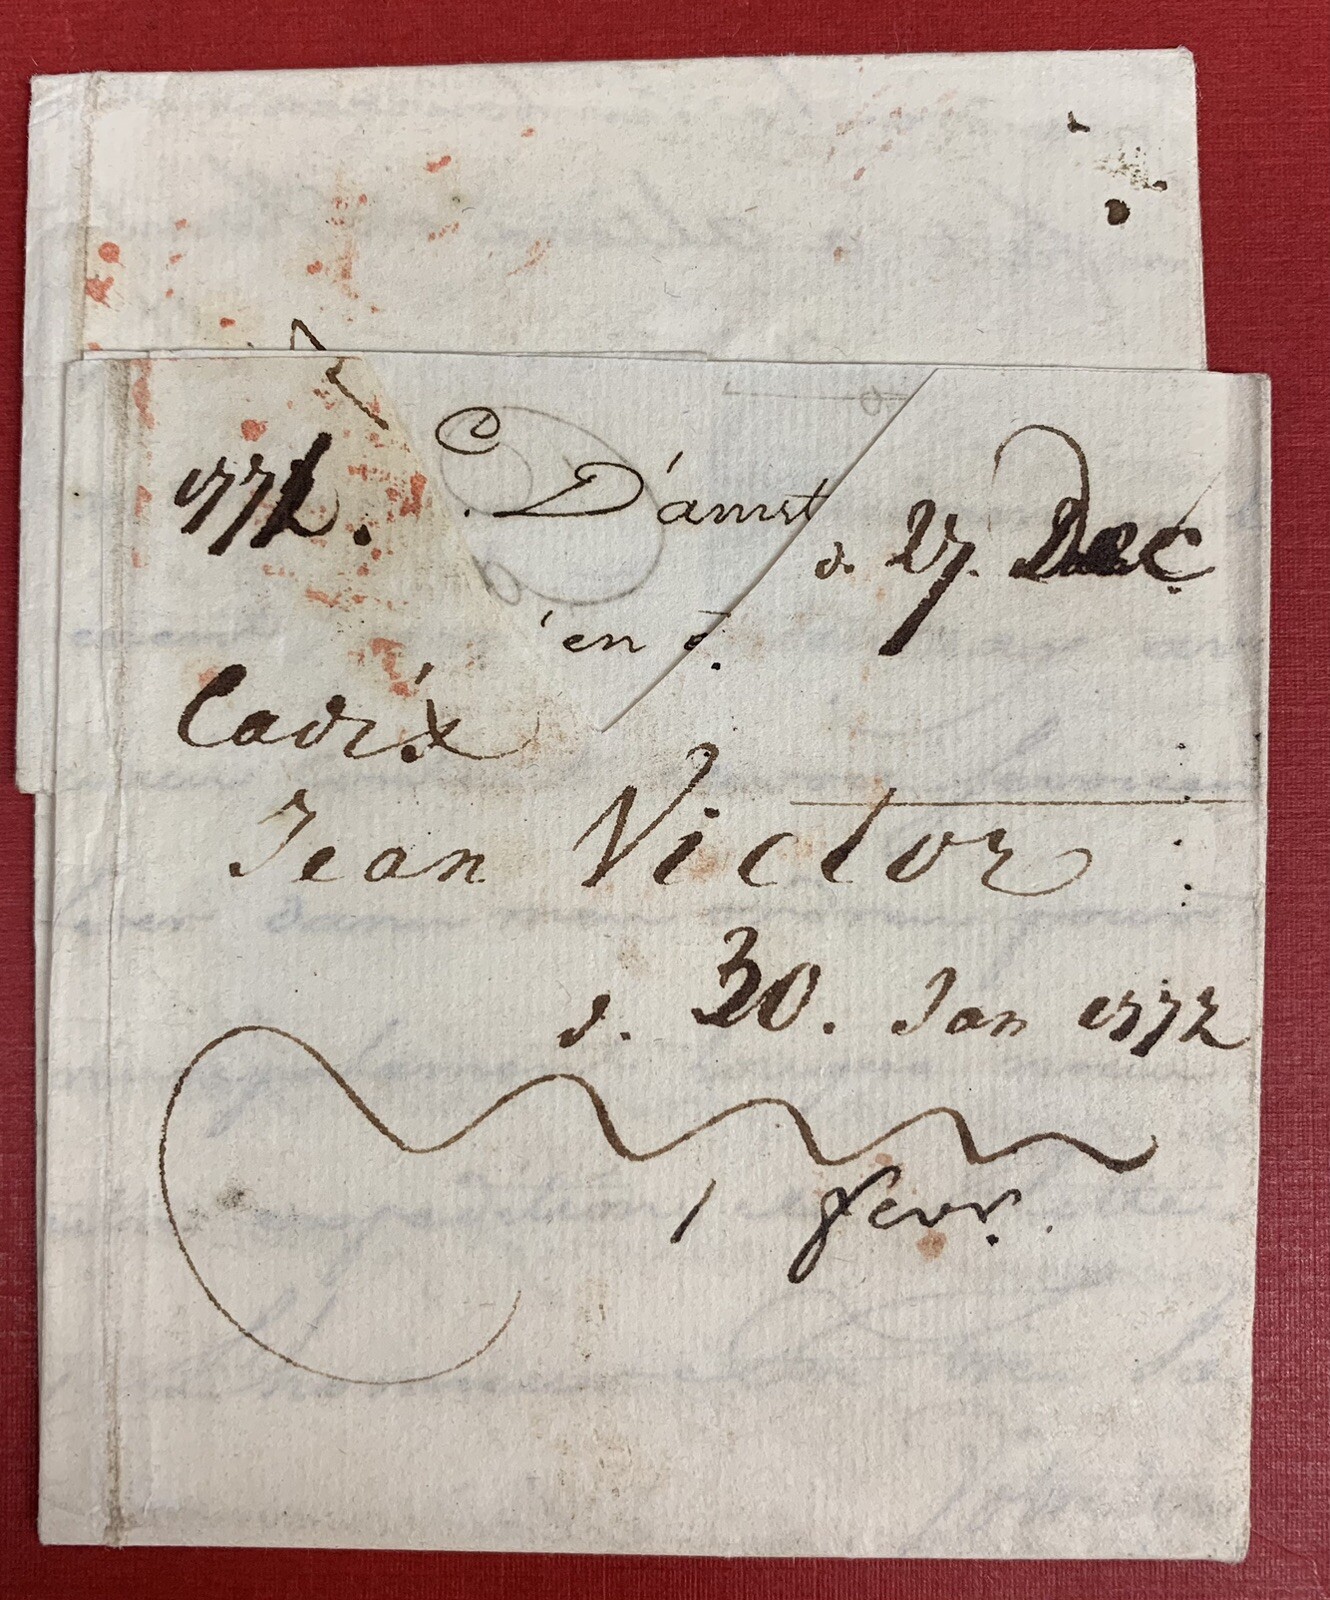 1772. D'amst
d. 27. Dec
en
Cadix
Jean Victor
d. 30. Jan 1772
1 fevr.